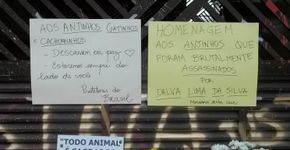 AOS ANJINHOS GATINHOS
E CACHORRINHOS
- DESCANSEM EM PAZ
- ESTAREMOS SEMPRE DO
LADO DE VOCÊS
BRASIL
HOMENAGEM
AOS ANJINHOS QUE
FORAM BRUTALMENTE
ASSASSINADOS
POR
DALVA LIMA DA SILVA
TODO ANIMAL